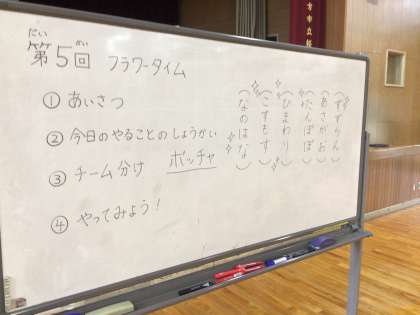 だい かい
第5回 フラワータイム
① あいさつ
② 今日のやることのしょうかい
③ チーム分け ボッチャ
④ やってみよう！
(すずらん)
(あさがお)
(たんぽぽ)
(ひまわり)
(こすもす)
(なのはな)
方市立